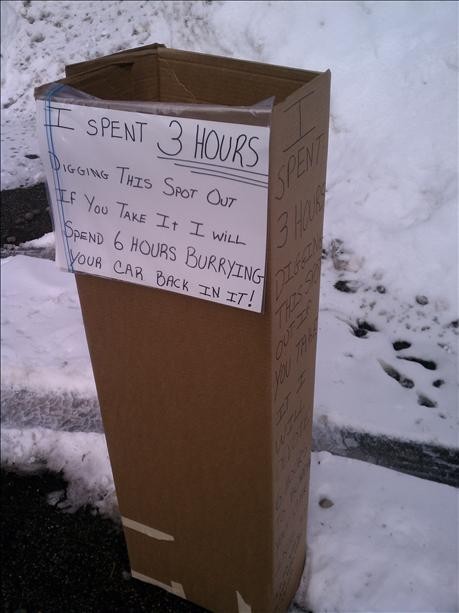 I SPENT 3 HOURS
DIGGING THIS SPOT OUT
IF YOU TAKE IT I WILL
SPEND 6 HOURS BURRYING
YOUR CAR BACK IN IT!
I
SPENT
3 HOURS
DIGGING
THIS SPOT
OUT IF
YOU TAKE
IT I
WILL